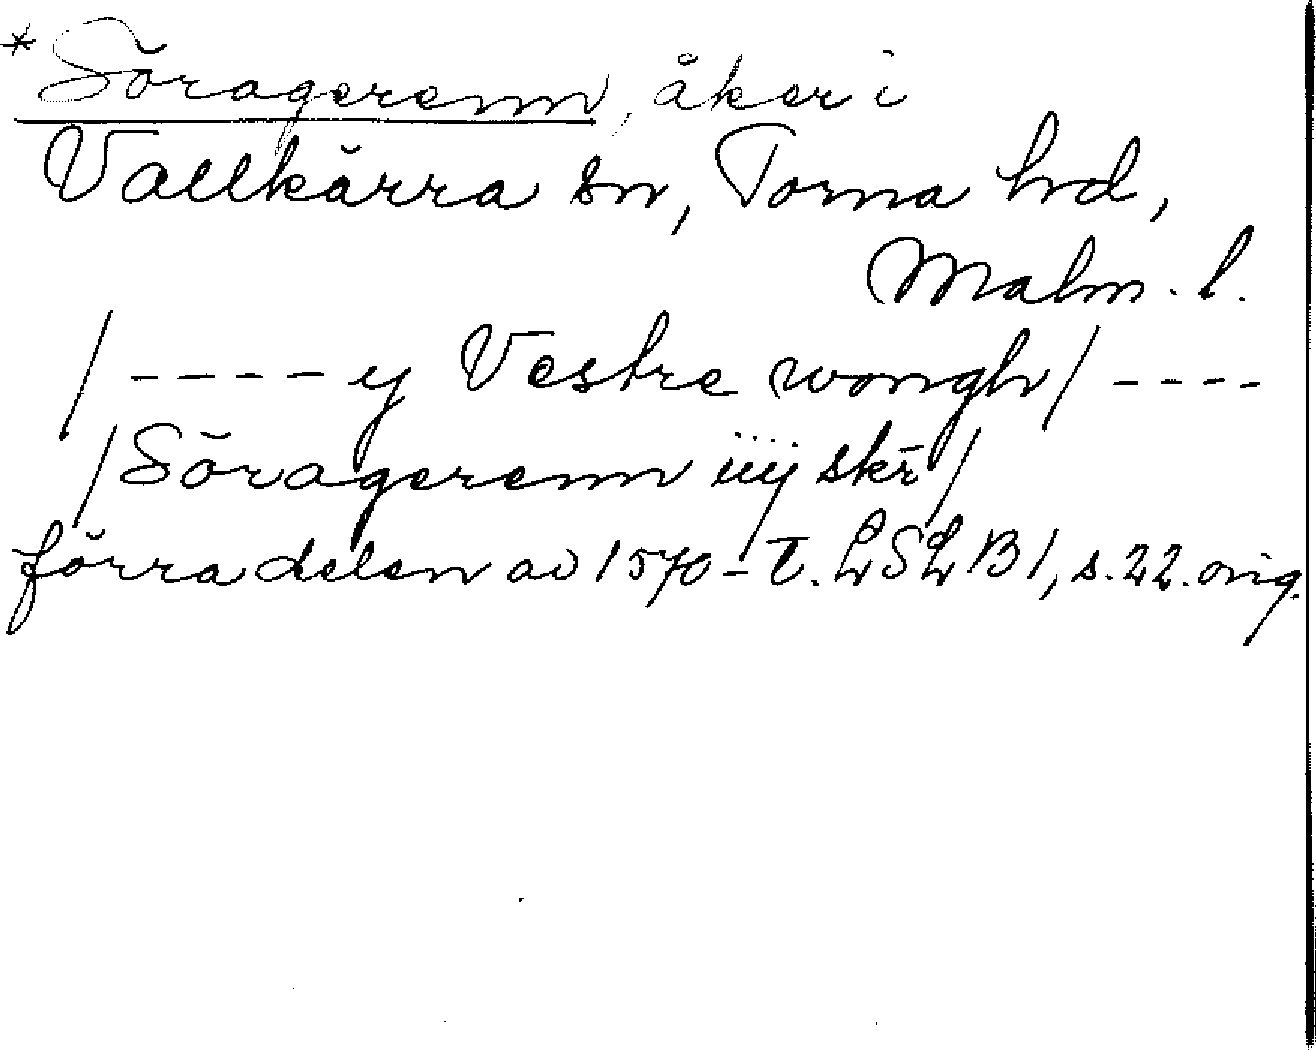 *Söragerenn, åker i
Vallkärra sn, Torna hd,
Malm. l.
/ ---- y Vestre wongh / ----
/ Söragerenn iiij skr̄ /
förra delen av 1570-t. LSLB1, s. 22. orig.